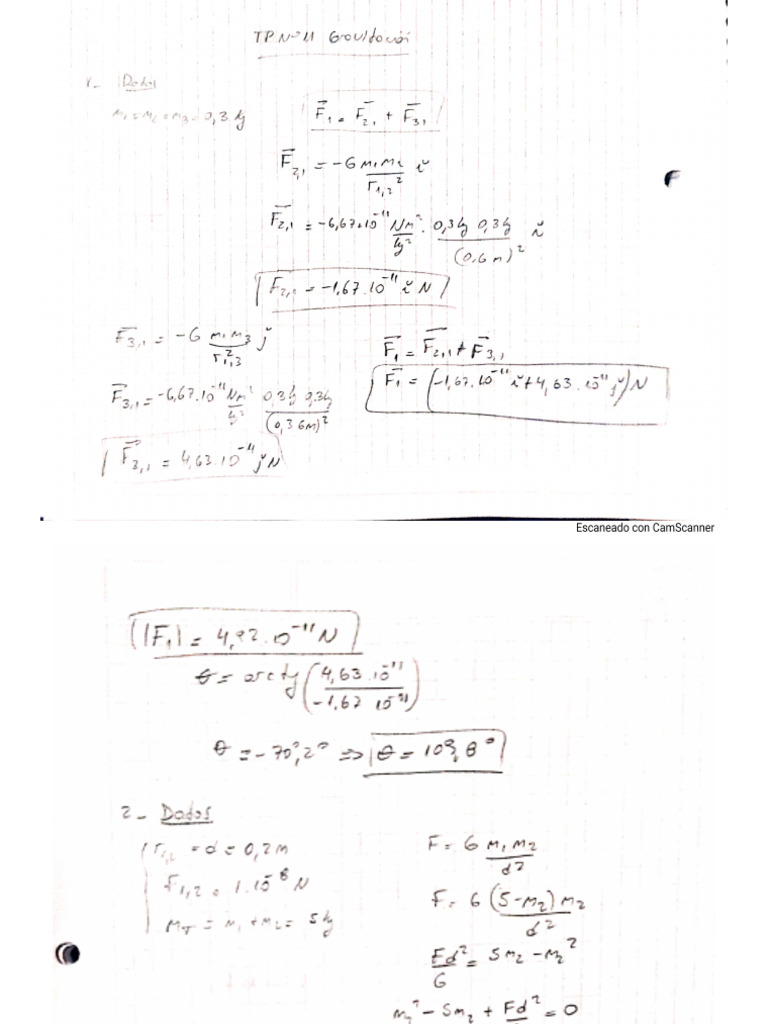 TP Nº 11 Gravitación
1- Datos
m₁ = m₂ = m₃ = 0,3 kg
F⃗₁ = F⃗₂,₁ + F⃗₃,₁
F⃗₂,₁ = -G m₁m₂ / r₁,₂² ǐ
F⃗₂,₁ = -6,67×10⁻¹¹ Nm²/kg² · 0,3kg 0,3kg / (0,6m)² ǐ
F⃗₂,₁ = -1,67.10⁻¹¹ ǐ N
F⃗₃,₁ = -G m₁m₃ / r₁,₃² ǰ
F⃗₃,₁ = -6,67.10⁻¹¹ Nm²/kg² 0,3kg 0,3kg / (0,36m)²
F⃗₃,₁ = 4,63.10⁻¹¹ ǰ N
F⃗₁ = F⃗₂,₁ + F⃗₃,₁
F⃗₁ = (-1,67.10⁻¹¹ ǐ + 4,63.10⁻¹¹ ǰ) N
Escaneado con CamScanner
|F₁| = 4,92.10⁻¹¹ N
θ = arctg (4,63.10⁻¹¹ / -1,67 10⁻¹¹)
θ = -70°,2° ⇒ θ = 109,8°
2- Datos
r₁,₂ = d = 0,2m
F₁,₂ = 1.10⁻⁸ N
m_T = m₁ + m₂ = 5 kg
F = G m₁m₂ / d²
F = G (5-m₂) m₂ / d²
Fd²/G = 5m₂ - m₂²
m₂² - 5m₂ + Fd² = 0